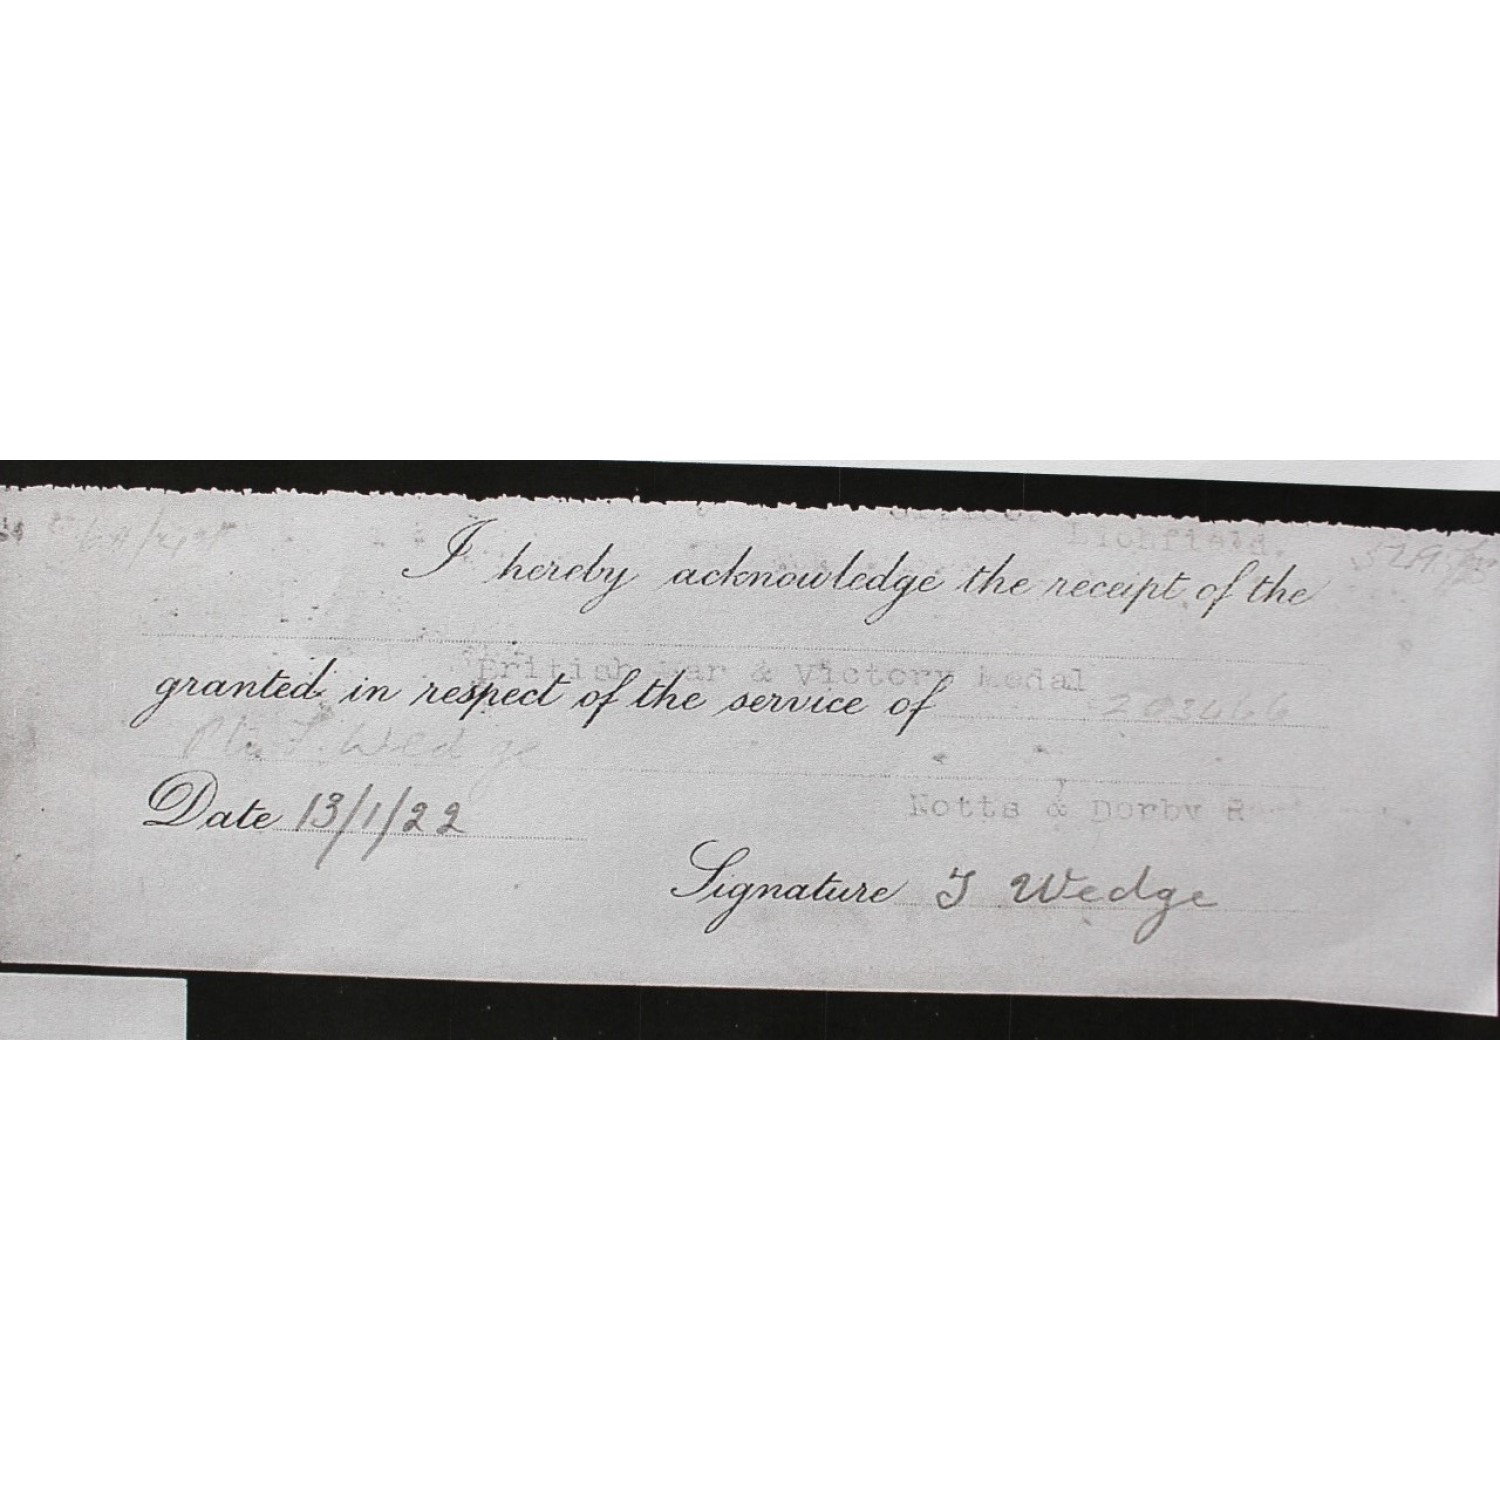 Lichfield.
I hereby acknowledge the receipt of the
British War & Victory Medal
granted in respect of the service of 203466
Pte T. Wedge
Notts & Derby R
Date 13/1/22
Signature T Wedge